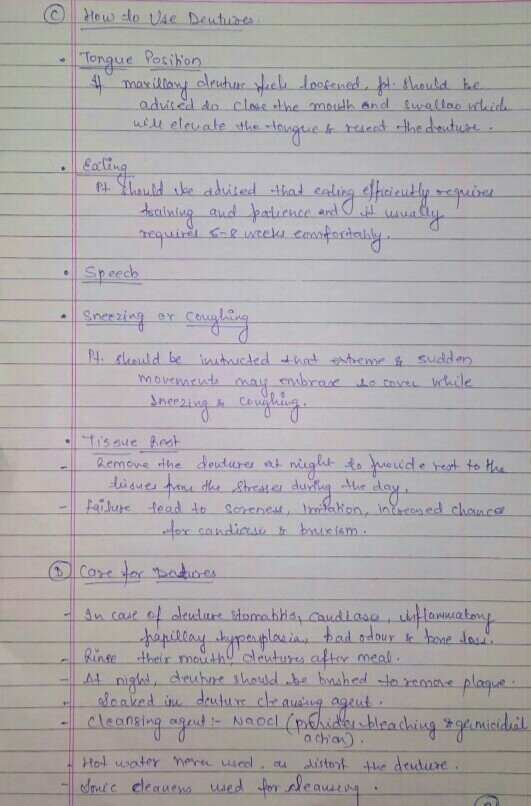 (C) How to Use Dentures.
• Tongue Position
If maxillary denture feels loosened, pt. should be
advised to close the mouth and swallow which
will elevate the tongue & reseat the denture.
• Eating
Pt should be advised that eating efficiently requires
training and patience and it usually
requires 6-8 weeks comfortably.
• Speech
• Sneezing or Coughing
Pt. should be instructed that extreme & sudden
movements may embrase to cover while
sneezing & coughing.
• Tissue Rest
- Remove the dentures at night to provide rest to the
tissues from the stresses during the day.
- failure lead to soreness, Irritation, increased chances
for candiasis & bruxism.
(D) Care for Dentures
- In case of denture stomatitis, candiasis, inflammatory
papillay hyperplasia, bad odour & bone loss.
- Rinse their mouth, dentures after meal.
- At night, denture should be brushed to remove plaque.
- Soaked in denture cleansing agent.
- Cleansing agent:- NaOCl (provides bleaching & germicidial
action).
- Hot water never used, as distort the denture.
- Sonic cleaners used for cleansing.